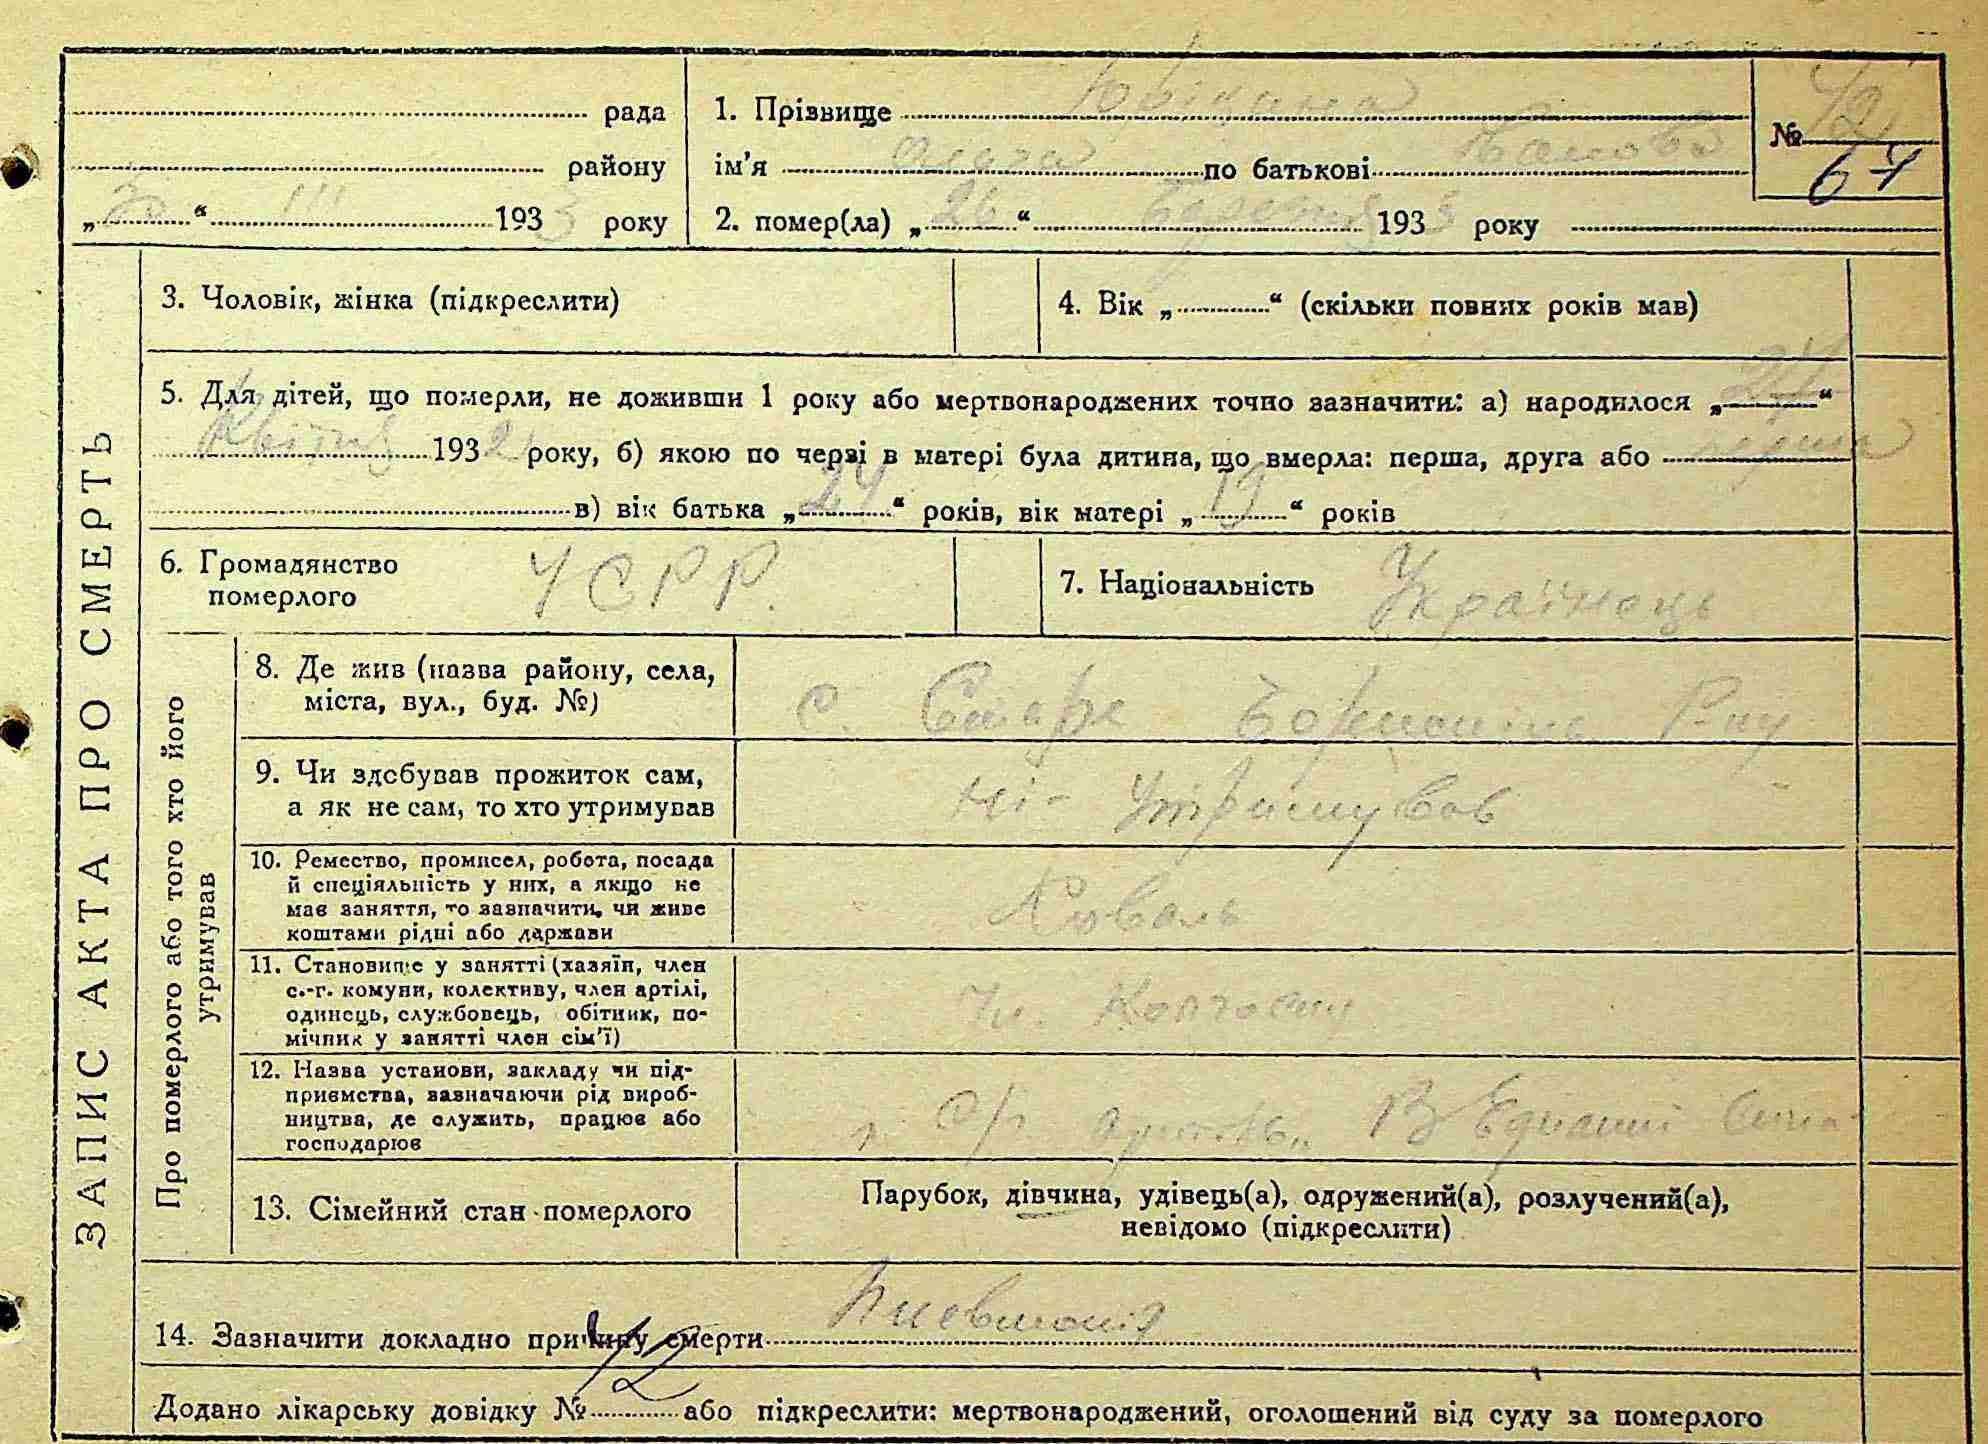 рада
району
„30“ III 1933 року
1. Прізвище
ім'я Ольга по батькові
2. помер(ла) „26“ Березня 1933 року
№ 42
64
ЗАПИС АКТА ПРО СМЕРТЬ
3. Чоловік, жінка (підкреслити)
4. Вік „ “ (скільки повних років мав)
5. Для дітей, що померли, не доживши 1 року або мертвонароджених точно зазначити: а) народилося „24“
Квітня 1932 року, б) якою по черзі в матері була дитина, що вмерла: перша, друга або перша
в) вік батька „24“ років, вік матері „19“ років
6. Громадянство
померлого
УСРР.
7. Національність Українець
Про померлого або того хто його
утримував
8. Де жив (назва району, села,
міста, вул., буд. №)
с. Старе Бориспіль. Р-ну
9. Чи здобував прожиток сам,
а як не сам, то хто утримував
Ні - Утримував
10. Ремество, промисел, робота, посада
й спеціяльність у них, а якщо не
має заняття, то зазначити, чи живе
коштами рідні або держави
Коваль
11. Становище у занятті (хазяїн, член
с.-г. комуни, колективу, член артілі,
одинець, службовець, обітник, по-
мічник у занятті член сім'ї)
Чл. Колгоспу
12. Назва установи, закладу чи під-
приємства, зазначаючи рід вироб-
ництва, де служить, працює або
господарює
С/г артіль „В Єднанні Сила“
13. Сімейний стан померлого
Парубок, дівчина, удівець(а), одружений(а), розлучений(а),
невідомо (підкреслити)
14. Зазначити докладно причину смерти Пневмонія
Додано лікарську довідку № 42 або підкреслити: мертвонароджений, оголошений від суду за померлого